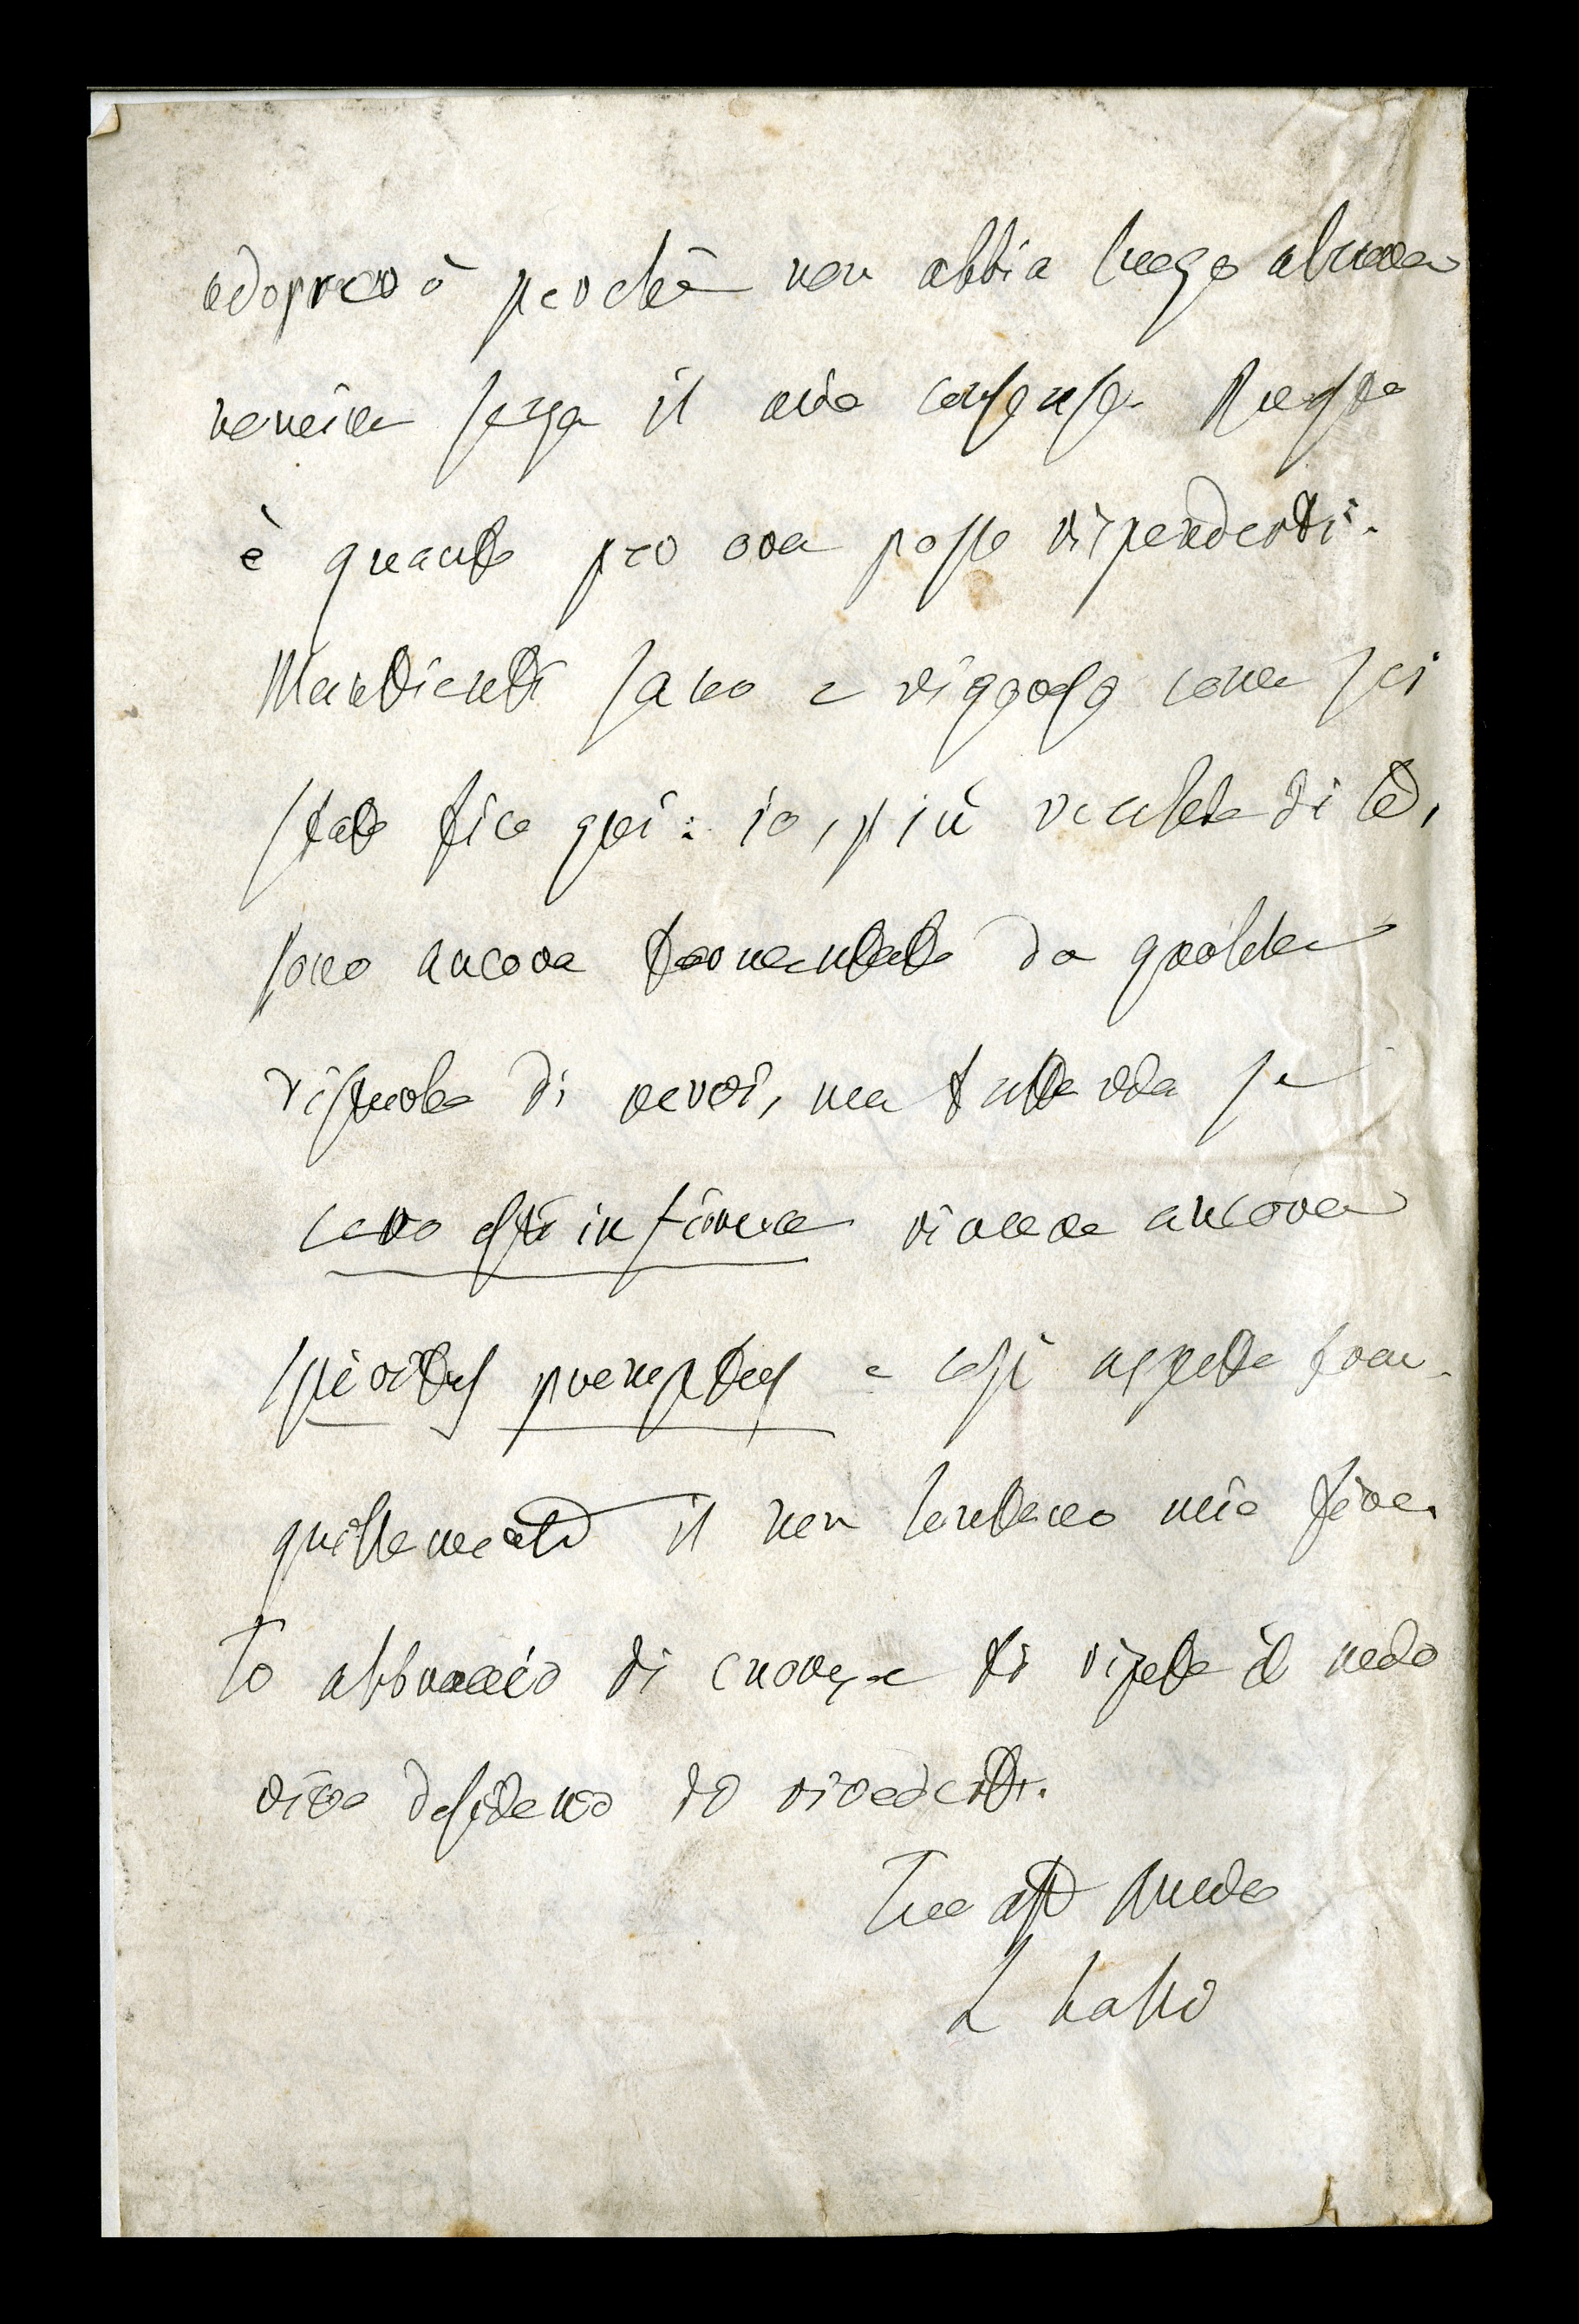 adoprerò perchè non abbia luogo alcuna
nomina senza il mio consenso. Questo
è quanto per ora posso risponderti.
Mantienti sano e vigoroso come sei
stato fin qui: io, più vecchio di te,
sono ancora tormentato da qualche
rispetto di nervi, ma tuttavia se
caro est infirma rimane ancora
spiritus promptus e così aspetto tran-
quillamente il non lontano mio fine.
Io abbraccio di cuore, e ti ripeto il modo
vivo desiderio di rivederti.
Tuo aff
L